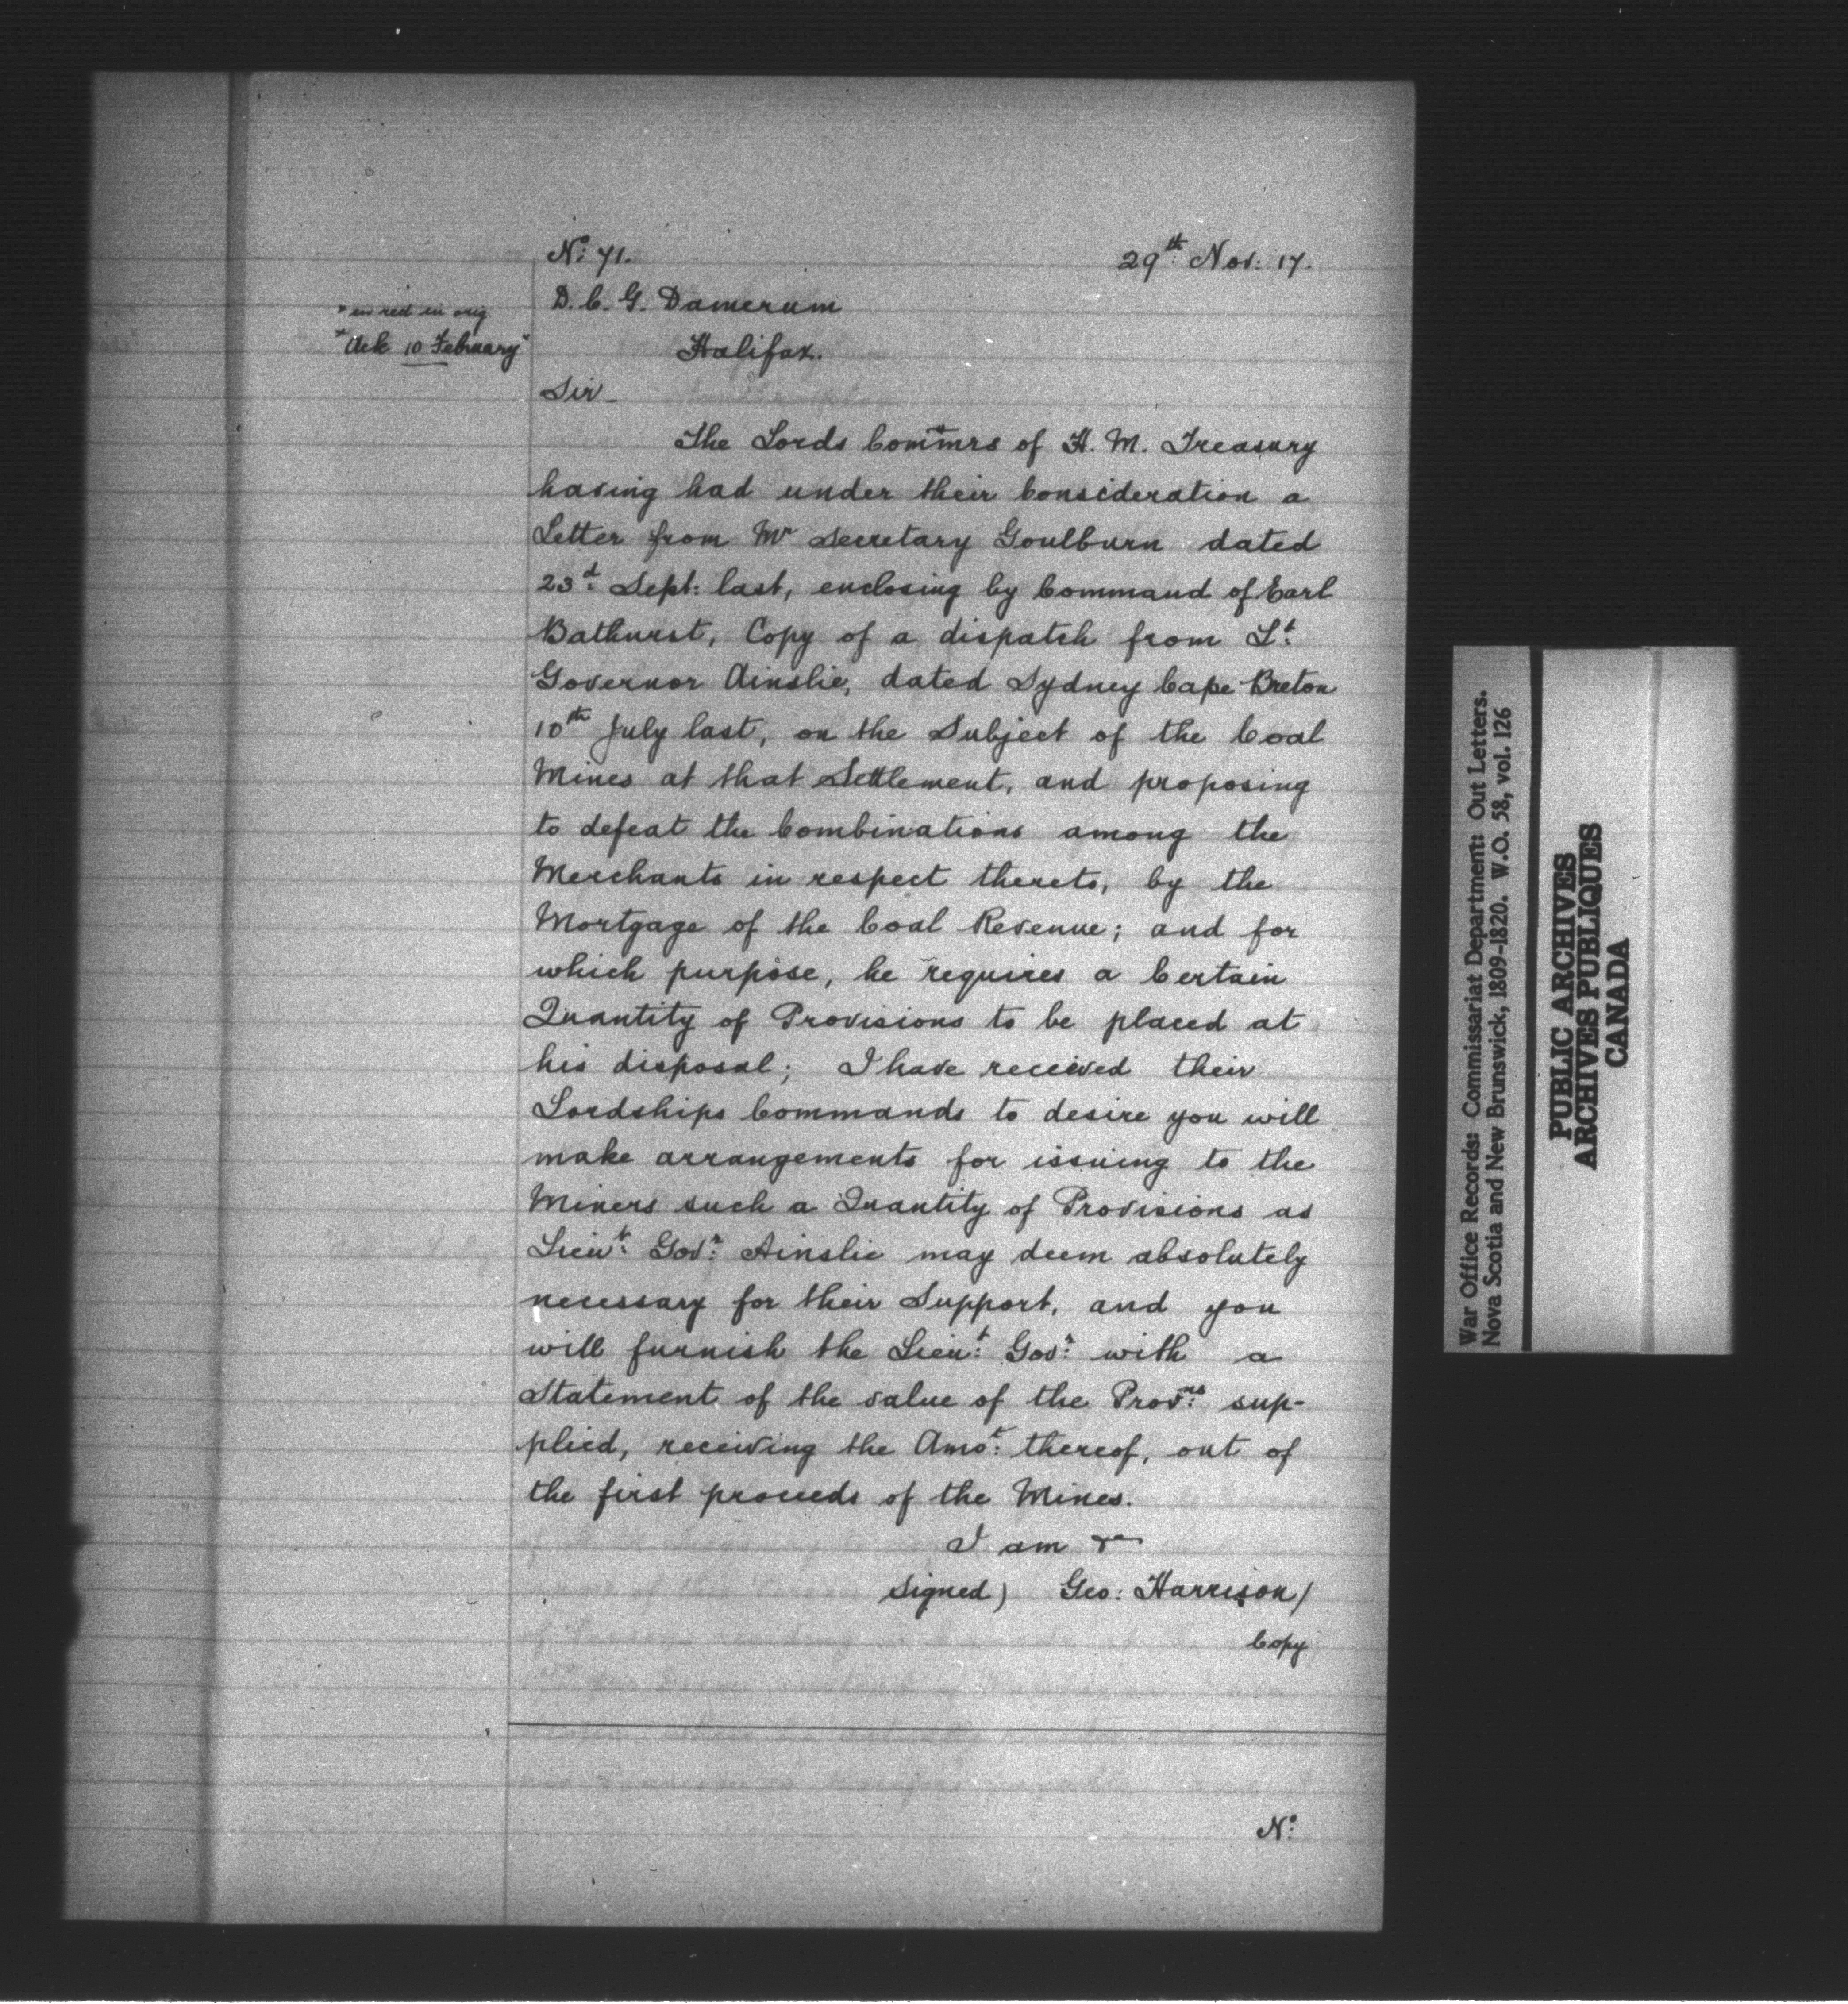 No: 71.
29th Nov: 17.
* in red in orig
* "Ack 10 February"
D. C. G. Damerum
Halifax.
Sir
The Lords Commrs of H. M. Treasury
having had under their Consideration a
Letter from Mr Secretary Goulburn dated
23d: Sept: last, enclosing by Command of Earl
Bathurst, Copy of a dispatch from Lt:
Governor Ainslie, dated Sydney Cape Breton
10th July last, on the Subject of the Coal
Mines at that Settlement, and proposing
to defeat the Combinations among the
Merchants in respect thereto, by the
Mortgage of the Coal Revenue; and for
which purpose, he requires a Certain
Quantity of Provisions to be placed at
his disposal; I have received their
Lordships Commands to desire you will
make arrangements for issuing to the
Miners such a Quantity of Provisions as
Lieut: Govr: Ainslie may deem absolutely
necessary for their Support, and you
will furnish the Lieut: Govr: with a
Statement of the value of the Provns: sup-
plied, receiving the Amot: thereof, out of
the first proceeds of the Mines.
I am &
Signed) Geo: Harrison/
Copy
No:
War Office Records: Commissariat Department: Out Letters.
Nova Scotia and New Brunswick, 1809-1820. W.O. 58, vol. 126
PUBLIC ARCHIVES
ARCHIVES PUBLIQUES
CANADA